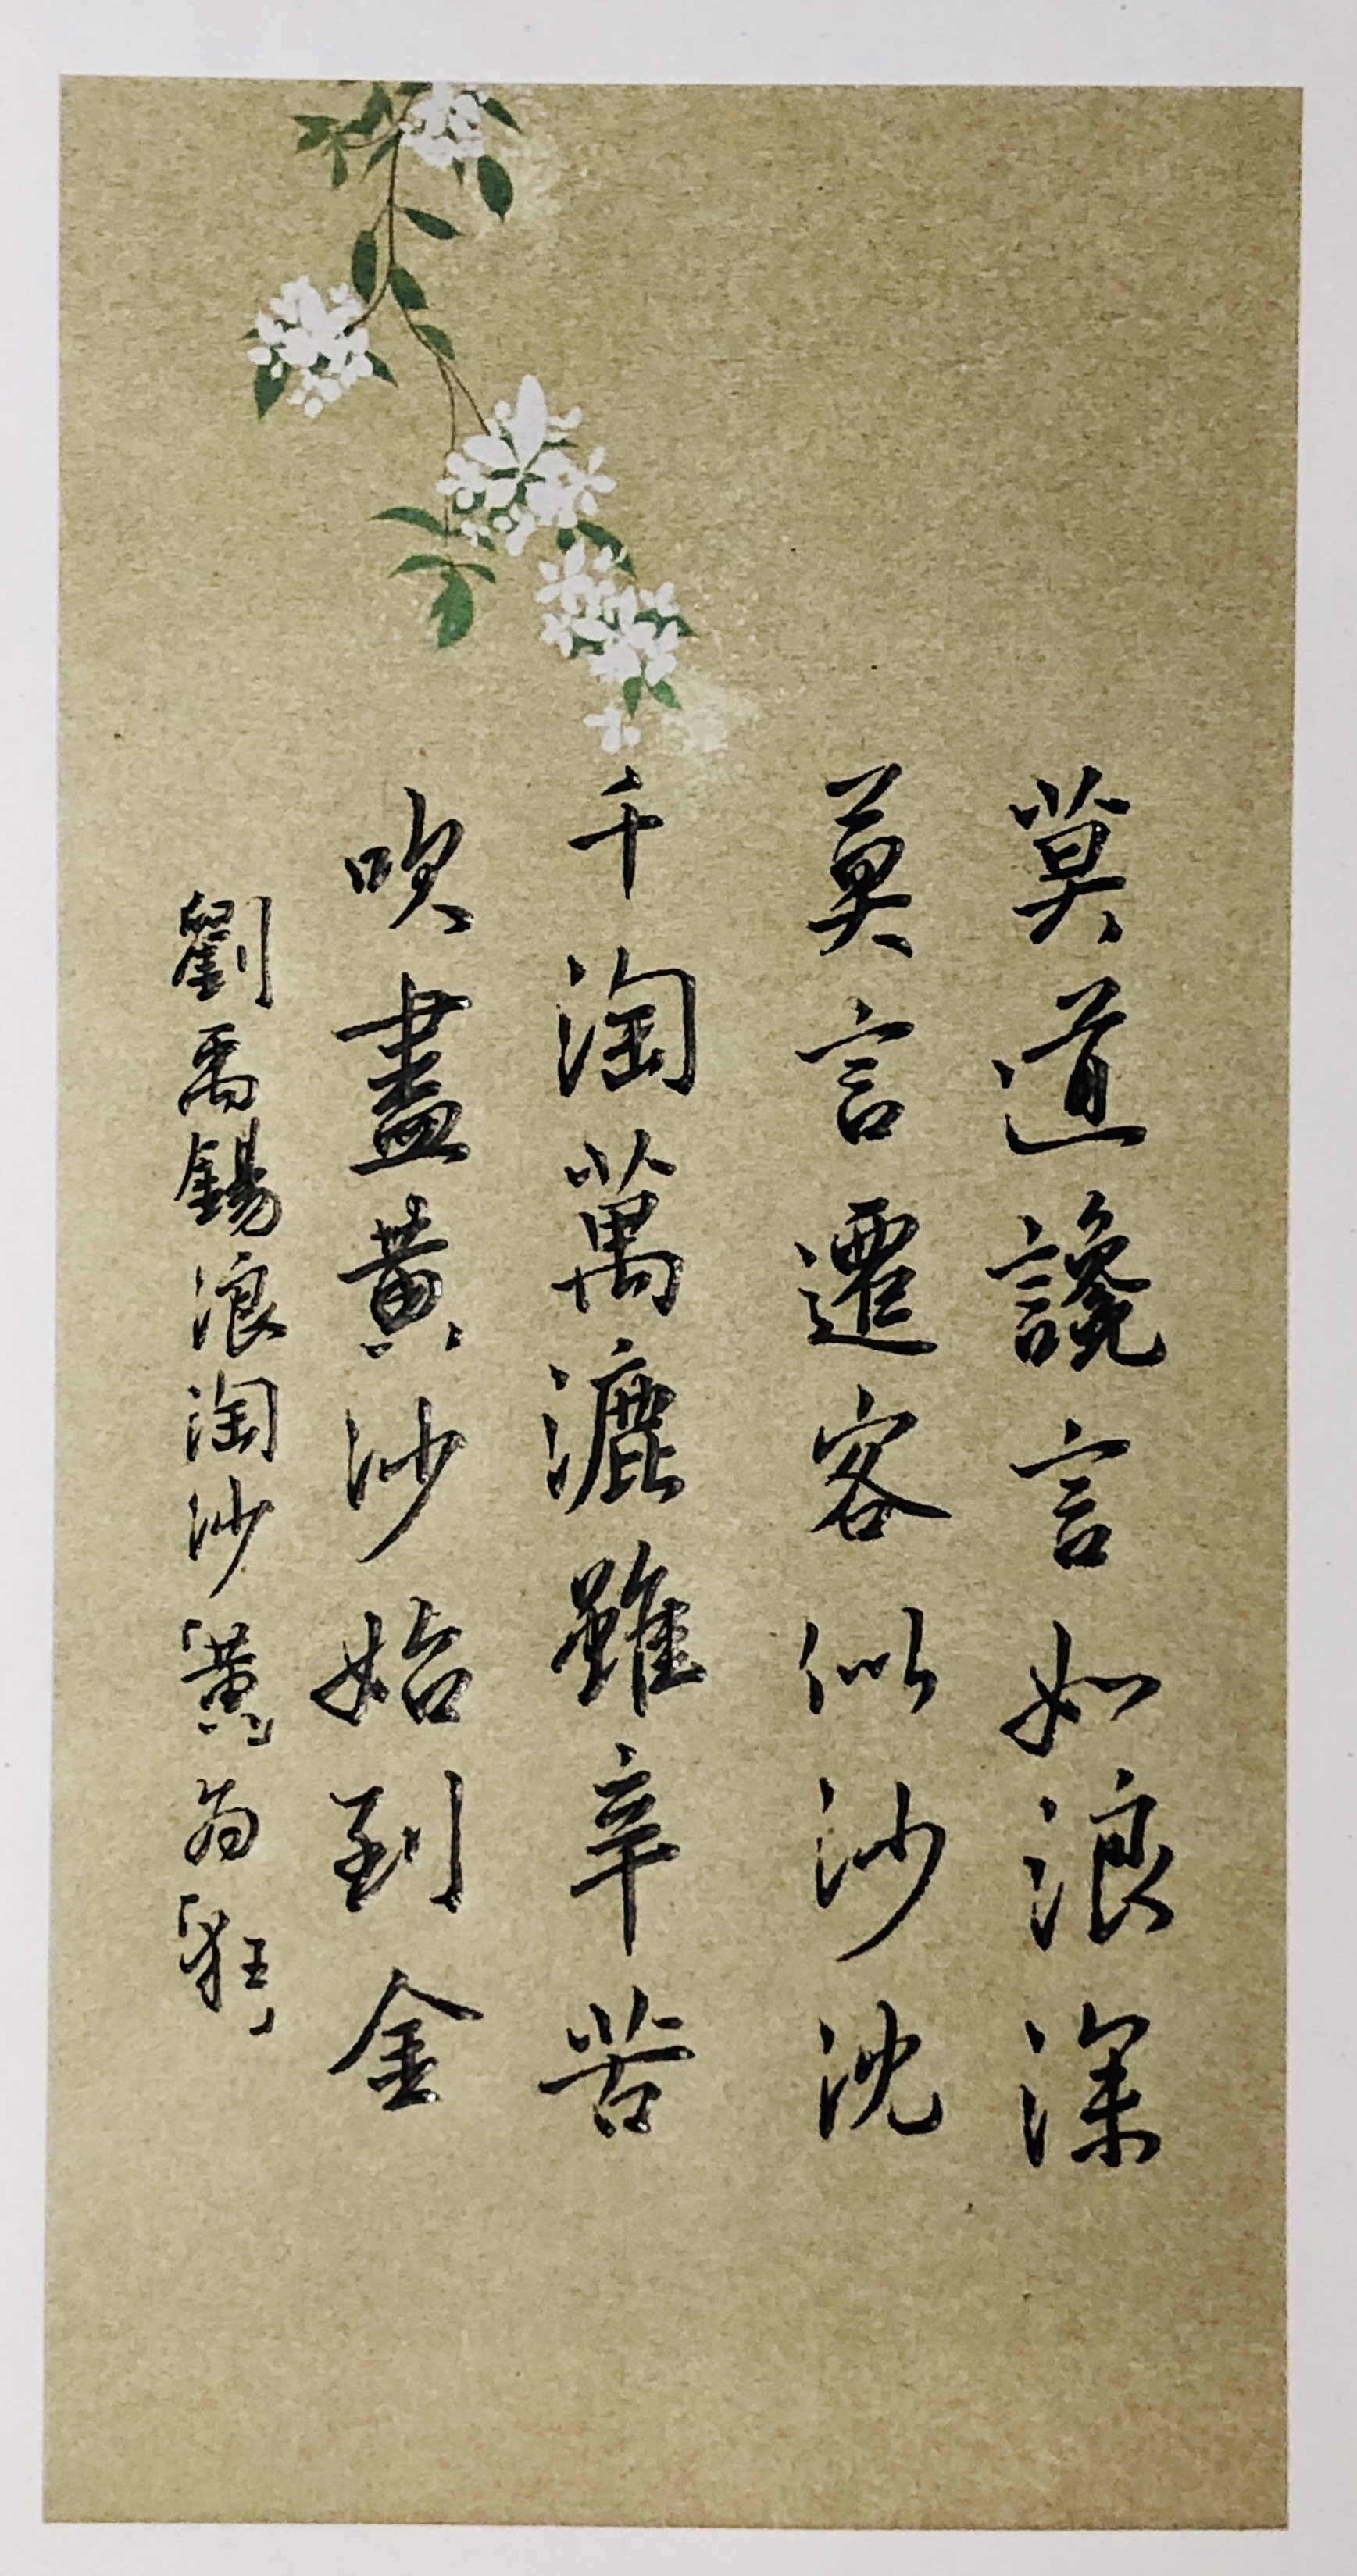 莫道讒言如浪深
莫言遷客似沙沈
千淘萬漉雖辛苦
吹盡黃沙始到金
劉禹錫浪淘沙「黃」為「狂」